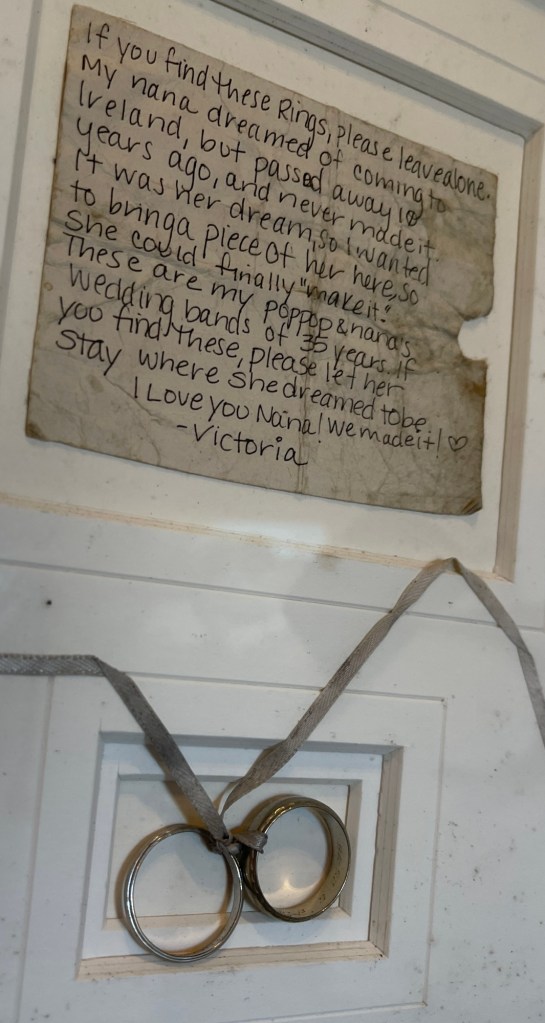 If you find these Rings, please leave alone.
My nana dreamed of coming to
Ireland, but passed away 18
years ago, and never made it.
It was her dream, so I wanted
to bring a piece of her here, so
She could finally "make it."
These are my poppop & nana's
wedding bands of 35 years. If
you find these, please let her
Stay where she dreamed to be.
I Love you Nana! We made it! ♡
-Victoria